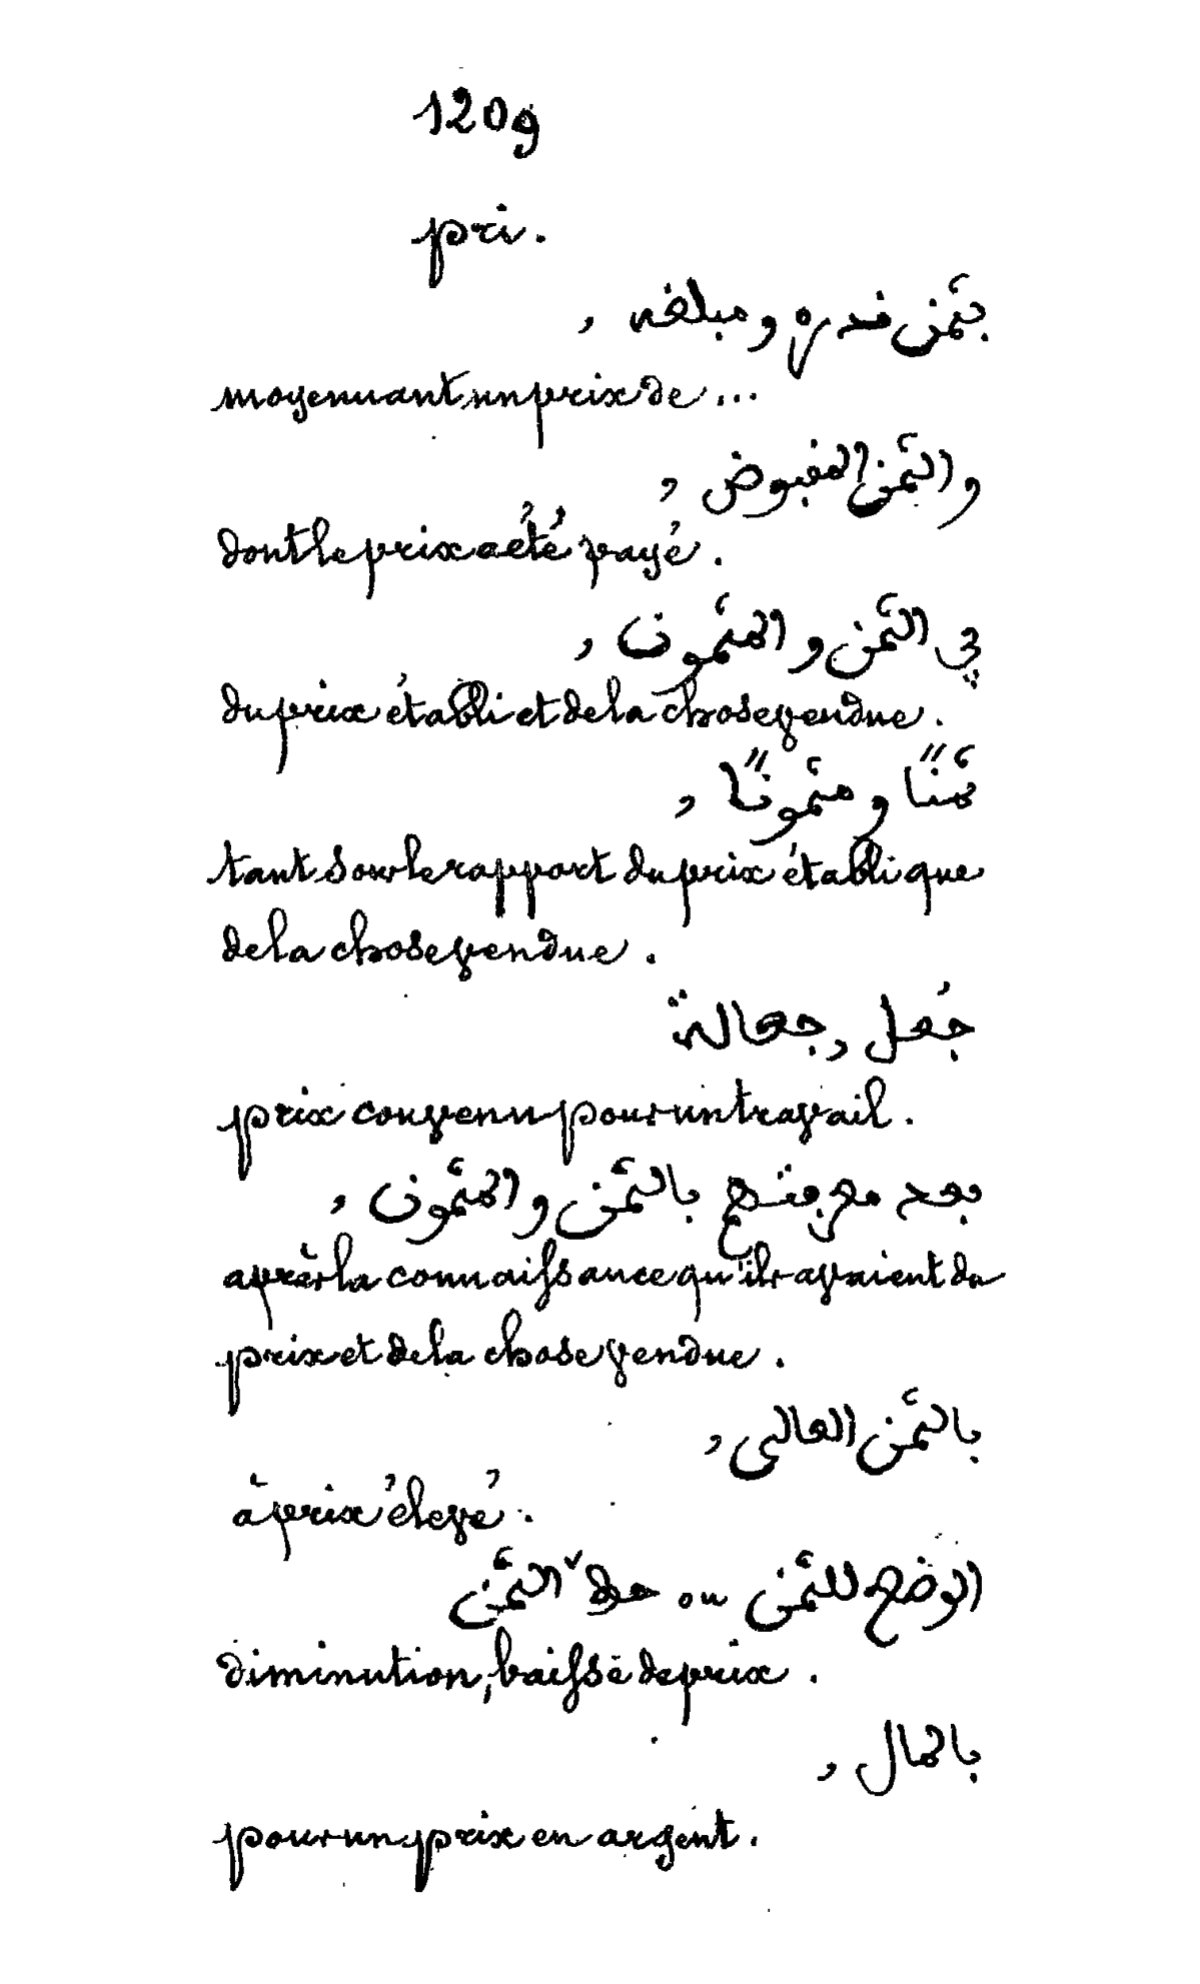 1209
pri.
بثمن قدره ومبلغه ,
moyennant un prix de ...
والثمن المقبوض ,
dont le prix a été payé.
في الثمن والمثمون ,
du prix établi et de la chose vendue.
ثمنًا ومثمونًا ,
tant sous le rapport du prix établi que
de la chose vendue.
جُعل , جعالة
prix convenu pour un travail.
بعد معرفتهم بالثمن والمثمون ,
après la connaissance qu'ils avaient du
prix et de la chose vendue.
بالثمن العالى ,
à prix élevé.
الوضع للثمن ou حطّ الثمن
diminution, baisse de prix.
بالمال ,
pour un prix en argent.